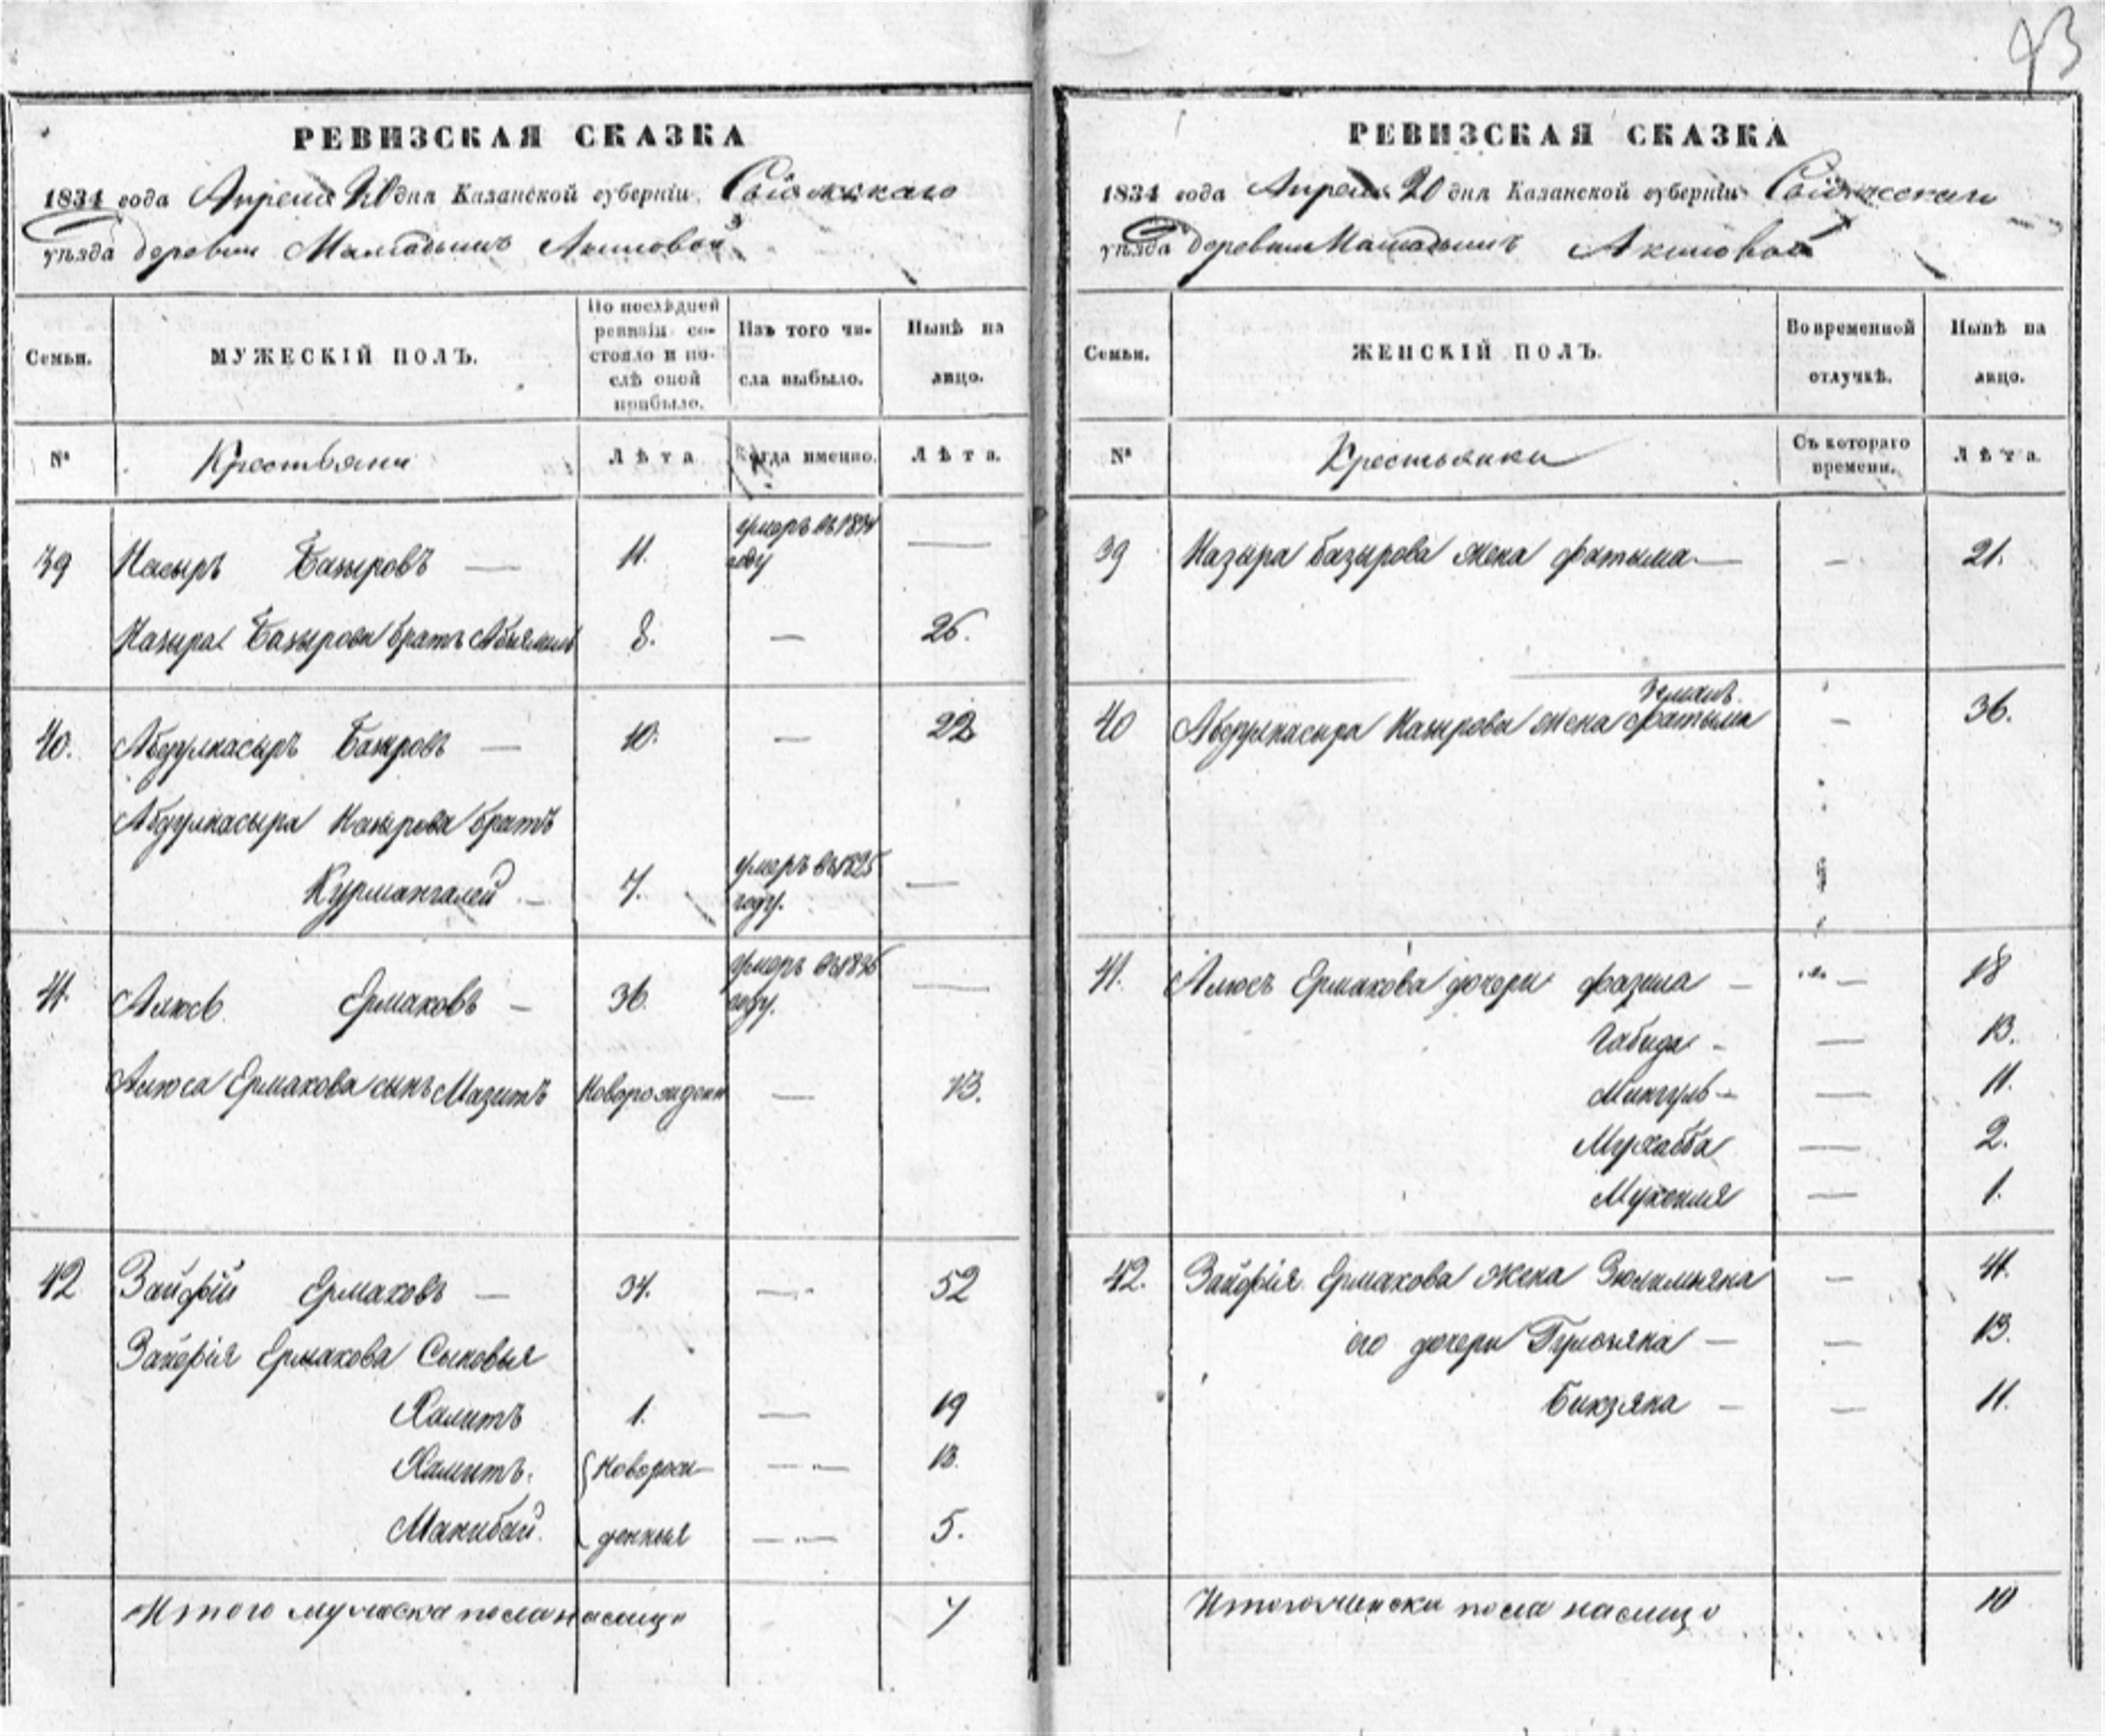 93
РЕВИЗСКАЯ СКАЗКА
1834 года Апреля 20 дня Казанской губерніи, Свіяжскаго
уѣзда деревни Акиповой
Семьи.
МУЖЕСКІЙ ПОЛЪ.
По послѣдней ревизіи состояло и послѣ оной прибыло.
Изъ того числа выбыло.
Нынѣ на лицо.
№
Крестьяни
Лѣта
Когда именно.
Лѣта.
39 Насыръ Базыровъ — 11. умеръ въ 1834 году —
Назыра Базырова братъ 8. — 26.
40. Абдулнасыръ — 10. — 22
Абдулнасыра Назырова братъ
Курмангалей — 7. умеръ въ 1825 году. —
41. Алюсъ Ермаковъ — 36. умеръ въ году. —
Алюса Ермакова сынъ Мазитъ Новорожден — 13.
42 Зайфій Ермаковъ — 34. — 52
Зайфія Ермакова Сыновья
Халитъ 1. — 19
Хамитъ. новорож — 13.
Манибай. денныя — 5.
Итого мужеска пола налицо 7
РЕВИЗСКАЯ СКАЗКА
1834 года Апреля 20 дня Казанской губерніи Свіяжскаго
уѣзда деревни Акиповой
Семьи.
ЖЕНСКІЙ ПОЛЪ.
Во временной отлучкѣ.
Нынѣ на лицо.
№
Крестьянки
Съ котораго времени.
Лѣта.
39 Назыра Базырова жена Фатыма — — 21.
40 Абдулнасыра Назырова жена Фатыма — 36.
41. Алюсъ Ермакова дочери Фазила — — 18
Габида — — 13.
Мингуль — — 11.
Мухабба — 2.
Мукемля — 1.
42. Зайфія Ермакова жена — 41.
его дочери — — 13.
Бикзяна — — 11.
Итого женска пола налицо 10